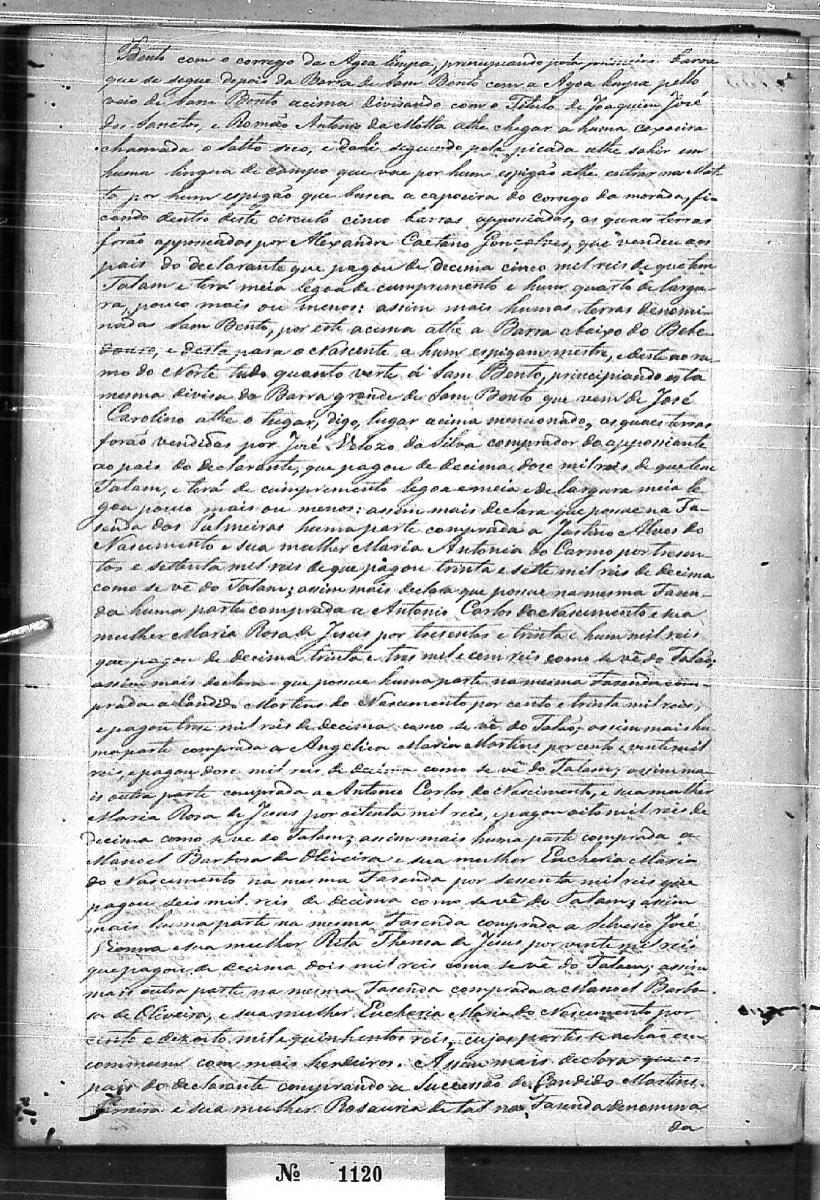 Bento com o corrego da Agoa limpa, principiando pela primeira barra
que se segue depois da Barra de Sam Bento com a Agoa limpa pello
veio de Sam Bento acima divisando com o Titulo de Joaquim José
dos Sanctos, e Romão Antonio da Motta athe chegar a huma caxoeira
chamada o Salto seco, e dahi seguindo pela picada athe sahir em
huma lingua de campo que vae por hum espigão athe entrar no Mat
to por hum espigão que busca a capoeira do corrego da morada, fi
cando dentro deste circulo cinco barras appossiadas, as quaes terras
forão appossiadas por Alexandre Caetano Gonçalves, que vendeu aos
pais do declarante que pagou de decima cinco mil reis de que tem
Talam e terá meia legoa de cumprimento e hum quarto de largu
ra, pouco mais ou menos: assim mais humas terras denomi
nadas Sam Bento, por este acima athe a Barra abaixo do Bebe
douro, e desta para o Nascente a hum espigam mestre, e deste ao ru
mo do Norte tudo quanto verte á Sam Bento, principiando esta
mesma divisa da Barra grande de Sam Bento que vem de José
Carolino athe o tugar, digo, lugar acima mencionado, as quaes terras
forão vendidas por José Velozo da Silva comprador do appossiante
ao pais do declarante, que pagou de decima dose mil reis de que tem
Talam, e terá de cumprimento legoa e meia e de largura meia le
goa pouco mais ou menos: assim mais declara que possue na Fa-
senda das Palmeiras huma parte comprada a Justino Alves do
Nascimento e sua mulher Maria Antonia do Carmo por tresen-
tos e setenta mil reis de que pagou trinta e sette mil reis de decima
como se vê do Talam; assim mais declara que possue na mesma Fasen-
da huma parte comprada a Antonio Carlos do Nascimento e sua
mulher Maria Rosa de Jesus por tresentos e trinta e hum mil reis
que pagou de decima trinta e tres mil e cem reis como se vê do Talão;
assim mais declara que possue huma parte na mesma Fasenda com-
prada a Candido Martins do Nascimento por cento e trinta mil reis,
e pagou trese mil reis de decima como se vê do Talão; assim mais hu
ma parte comprada a Angelica Maria Martins por cento e vinte mil
reis, e pagou dose mil reis de decima como se vê do Talam; assim ma-
is outra parte comprada a Antonio Carlos do Nascimento, e sua mulher
Maria Rosa de Jesus por oitenta mil reis, e pagou oito mil reis de
decima como se vê do Talam; assim mais huma parte comprada a
Manoel Barbosa de Oliveira e sua mulher Eucheria Maria
do Nascimento na mesma Fasenda por sessenta mil reis que
pagou seis mil reis de decima como se vê do Talam; assim
mais huma parte na mesma Fasenda comprada a Silverio José
Vianna e sua mulher Rita Theresa de Jesus por vinte mil reis
que pagou de decima dois mil reis como se vê do Talam; assim
mais outra parte na mesma Fasenda comprada a Manoel Barbo-
sa de Oliveira, e sua mulher Eucheria Maria do Nascimento por
cento e dezoito mil e quinhentos reis, cujas partes se achão em
commum com mais herdeiros. Assim mais declara que os
pais do declarante comprando a Successão de Candido Martins
Ferreira e sua mulher Rosauria de tal na Fasenda denomina
da
Nº 1120